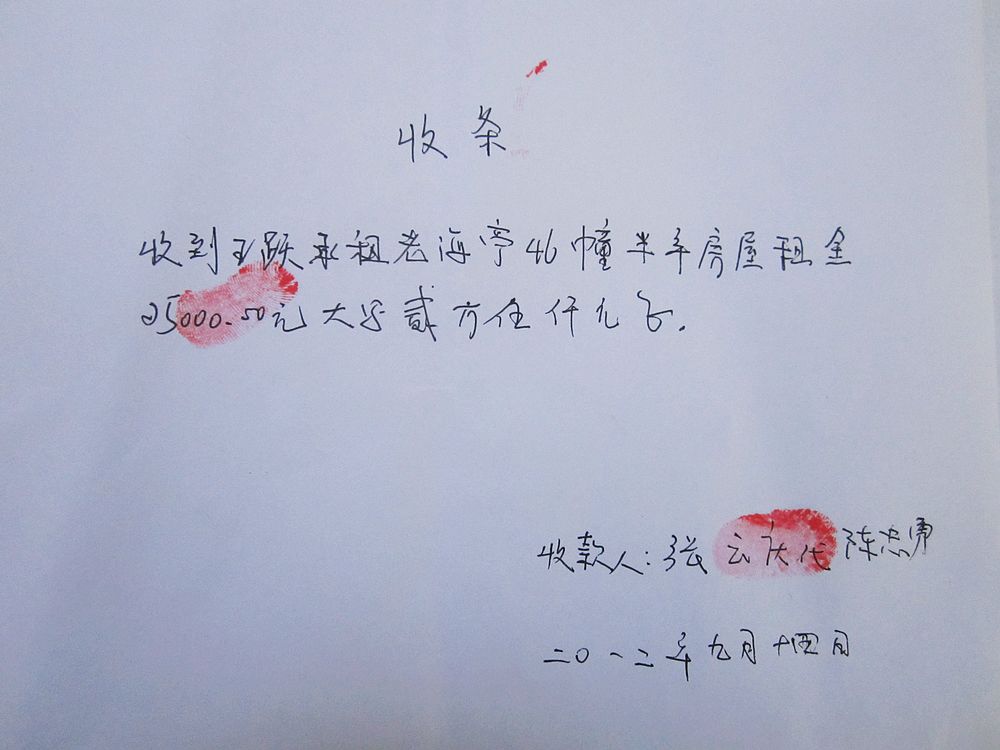 收条
收到王跃承租老海亭46幢半年房屋租金
25000.50元大写贰万伍仟元正.
收款人:张云庆代陈忠勇
二〇一二年九月十四日